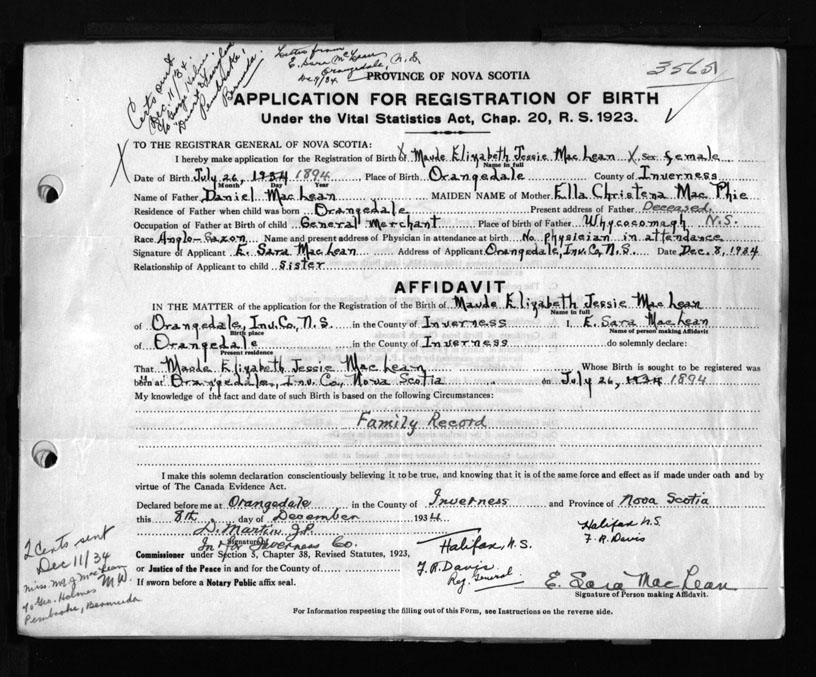 Certs out
Dec 11/34
Pembroke,
Bermuda.
Letter from
E. Sara McLean
Orangedale, N.S.
Dec 9/34.
3565
PROVINCE OF NOVA SCOTIA
APPLICATION FOR REGISTRATION OF BIRTH
Under the Vital Statistics Act, Chap. 20, R. S. 1923.
TO THE REGISTRAR GENERAL OF NOVA SCOTIA:
I hereby make application for the Registration of Birth of Maude Elizabeth Jessie MacLean X Sex female
Name in full
Date of Birth July 26, 1934 1894 Place of Birth Orangedale County of Inverness
Month Day Year
Name of Father Daniel MacLean MAIDEN NAME of Mother Ella Christena MacPhie
Residence of Father when child was born Orangedale Present address of Father Deceased.
Occupation of Father at Birth of child General Merchant Place of birth of Father Whycocomagh N.S.
Race Anglo-Saxon Name and present address of Physician in attendance at birth No physician in attendance
Signature of Applicant E. Sara MacLean Address of Applicant Orangedale, Inv. Co, N.S. Date Dec. 8, 1934
Relationship of Applicant to child Sister
AFFIDAVIT
IN THE MATTER of the application for the Registration of the Birth of Maude Elizabeth Jessie MacLean
Name in full
of Orangedale, Inv. Co, N.S. in the County of Inverness I, E. Sara MacLean
Birth place Name of person making Affidavit
of Orangedale in the County of Inverness do solemnly declare:
Present residence
That Maude Elizabeth Jessie MacLean Whose Birth is sought to be registered was
born at Orangedale, Inv. Co., Nova Scotia on July 26, 1934 1894
My knowledge of the fact and date of such Birth is based on the following Circumstances:
Family Record
I make this solemn declaration conscientiously believing it to be true, and knowing that it is of the same force and effect as if made under oath and by
virtue of The Canada Evidence Act.
Declared before me at Orangedale in the County of Inverness and Province of Nova Scotia
this 8th day of December 1934
D. Martin J.P.
Signature of
In & for Inverness Co.
Halifax N.S.
F. R. Davis
Commissioner under Section 5, Chapter 38, Revised Statutes, 1923,
or Justice of the Peace in and for the County of
If sworn before a Notary Public affix seal.
Halifax, N.S.
F. R. Davis
Reg. General
E. Sara MacLean
Signature of Person making Affidavit.
2 Certs sent
Dec 11/34
Miss. M. J. MacLean
c/o Geo. Holmes
M.W.
Pembroke, Bermuda
For Information respecting the filling out of this Form, see Instructions on the reverse side.